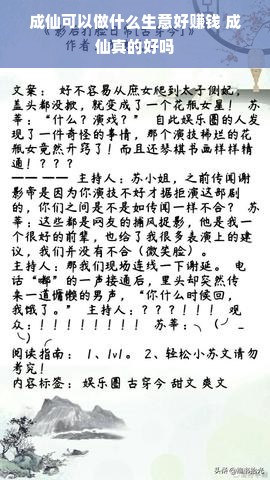 成仙可以做什么生意好赚钱 成
仙真的好吗
文案： 好不容易从庶女爬到太子侧妃，
盖头都没掀，就变成了一个花瓶女星！ 苏
葶：“什么？演戏？” 自此娱乐圈的人发
现了一件奇怪的事情，那个演技稀烂的花
瓶女竟然开窍了！而且还琴棋书画样样精
通！？？？
—— —— 主持人：苏小姐，之前传闻谢
影帝是因为你演技不好才据拒演这部剧
的，你们之间是不是如传闻一样不合？ 苏
葶：这些都是网友的捕风捉影，他是我一
个很好的前辈，也给了我很多表演上的建
议，我们并没有不合（微笑脸）。
主持人：那我们现场连线一下谢延。 电
话“嘟”的一声接通后，里头却突然传
来一道慵懒的男声，“你什么时候回，
我饿了。” 主持人：？？？！！！ 观
众：！！！！！！！！ 苏葶：╮(╯_
╰)╭
阅读指南： 1、1v1。 2、轻松小苏文请勿
考究！
内容标签： 娱乐圈 古穿今 甜文 爽文